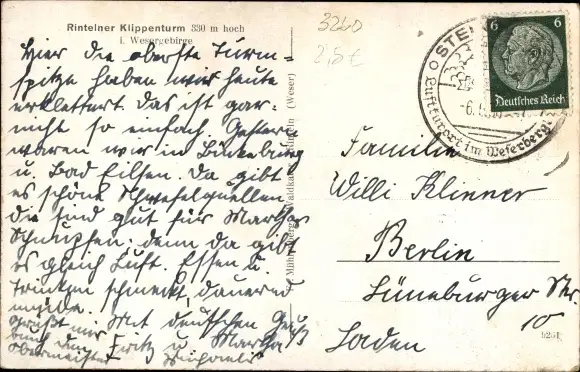 Rintelner Klippenturm 330 m hoch
i. Wesergebirge
Hier die oberste Turm-
spitze haben wir heute
erklettert das ist gar-
nicht so einfach. Gestern
waren wir in Bückeburg
u. Bad Eilsen. Da gibt
es schöne Schwefelquellen,
die sind gut für Marthas
Schnupfen; denn da gibt
es gleich Luft. Essen u.
trinken schmeckt, dauernd
müde. Mit deutschen Gruß
grüßt mir Fritz u. Martha
den
Obermeister
(Weser)
3240
2,5€
6 6
Deutsches Reich
Luftkurort im Weserberg
Familie
Willi Klinner
Berlin
Lüneburger Str
10
Laden